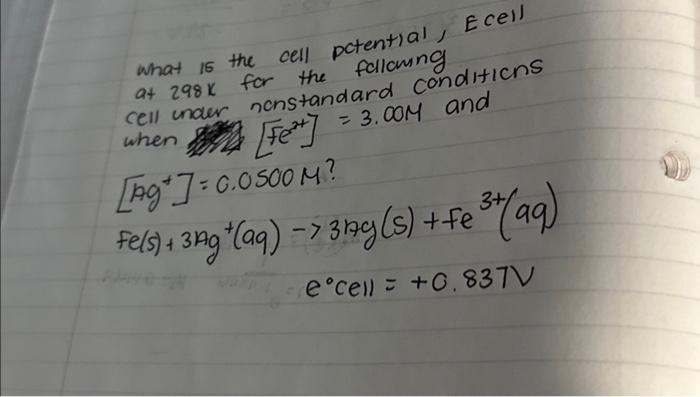 what is the cell potential, Ecell
at 298K for the following
cell under nonstandard conditions
when [Fe²⁺] = 3.00M and
[Ag⁺] = 0.0500M?
Fe(s) + 3Ag⁺(aq) -> 3Ag(s) + Fe³⁺(aq)
e°cell = +0.837V